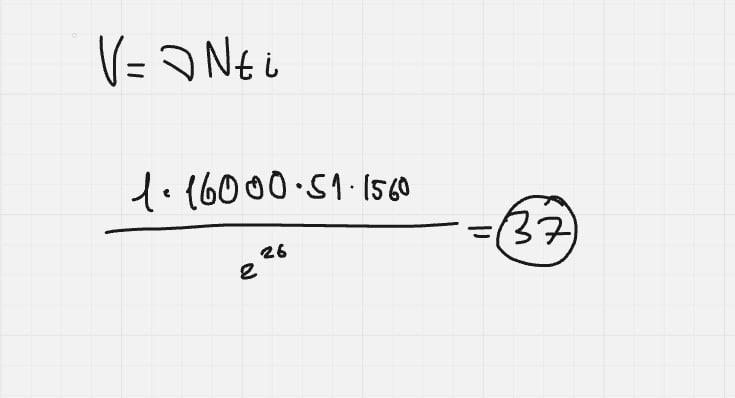 V = DNti
1 · 16000 · 51 · 1560
2^26
= 37